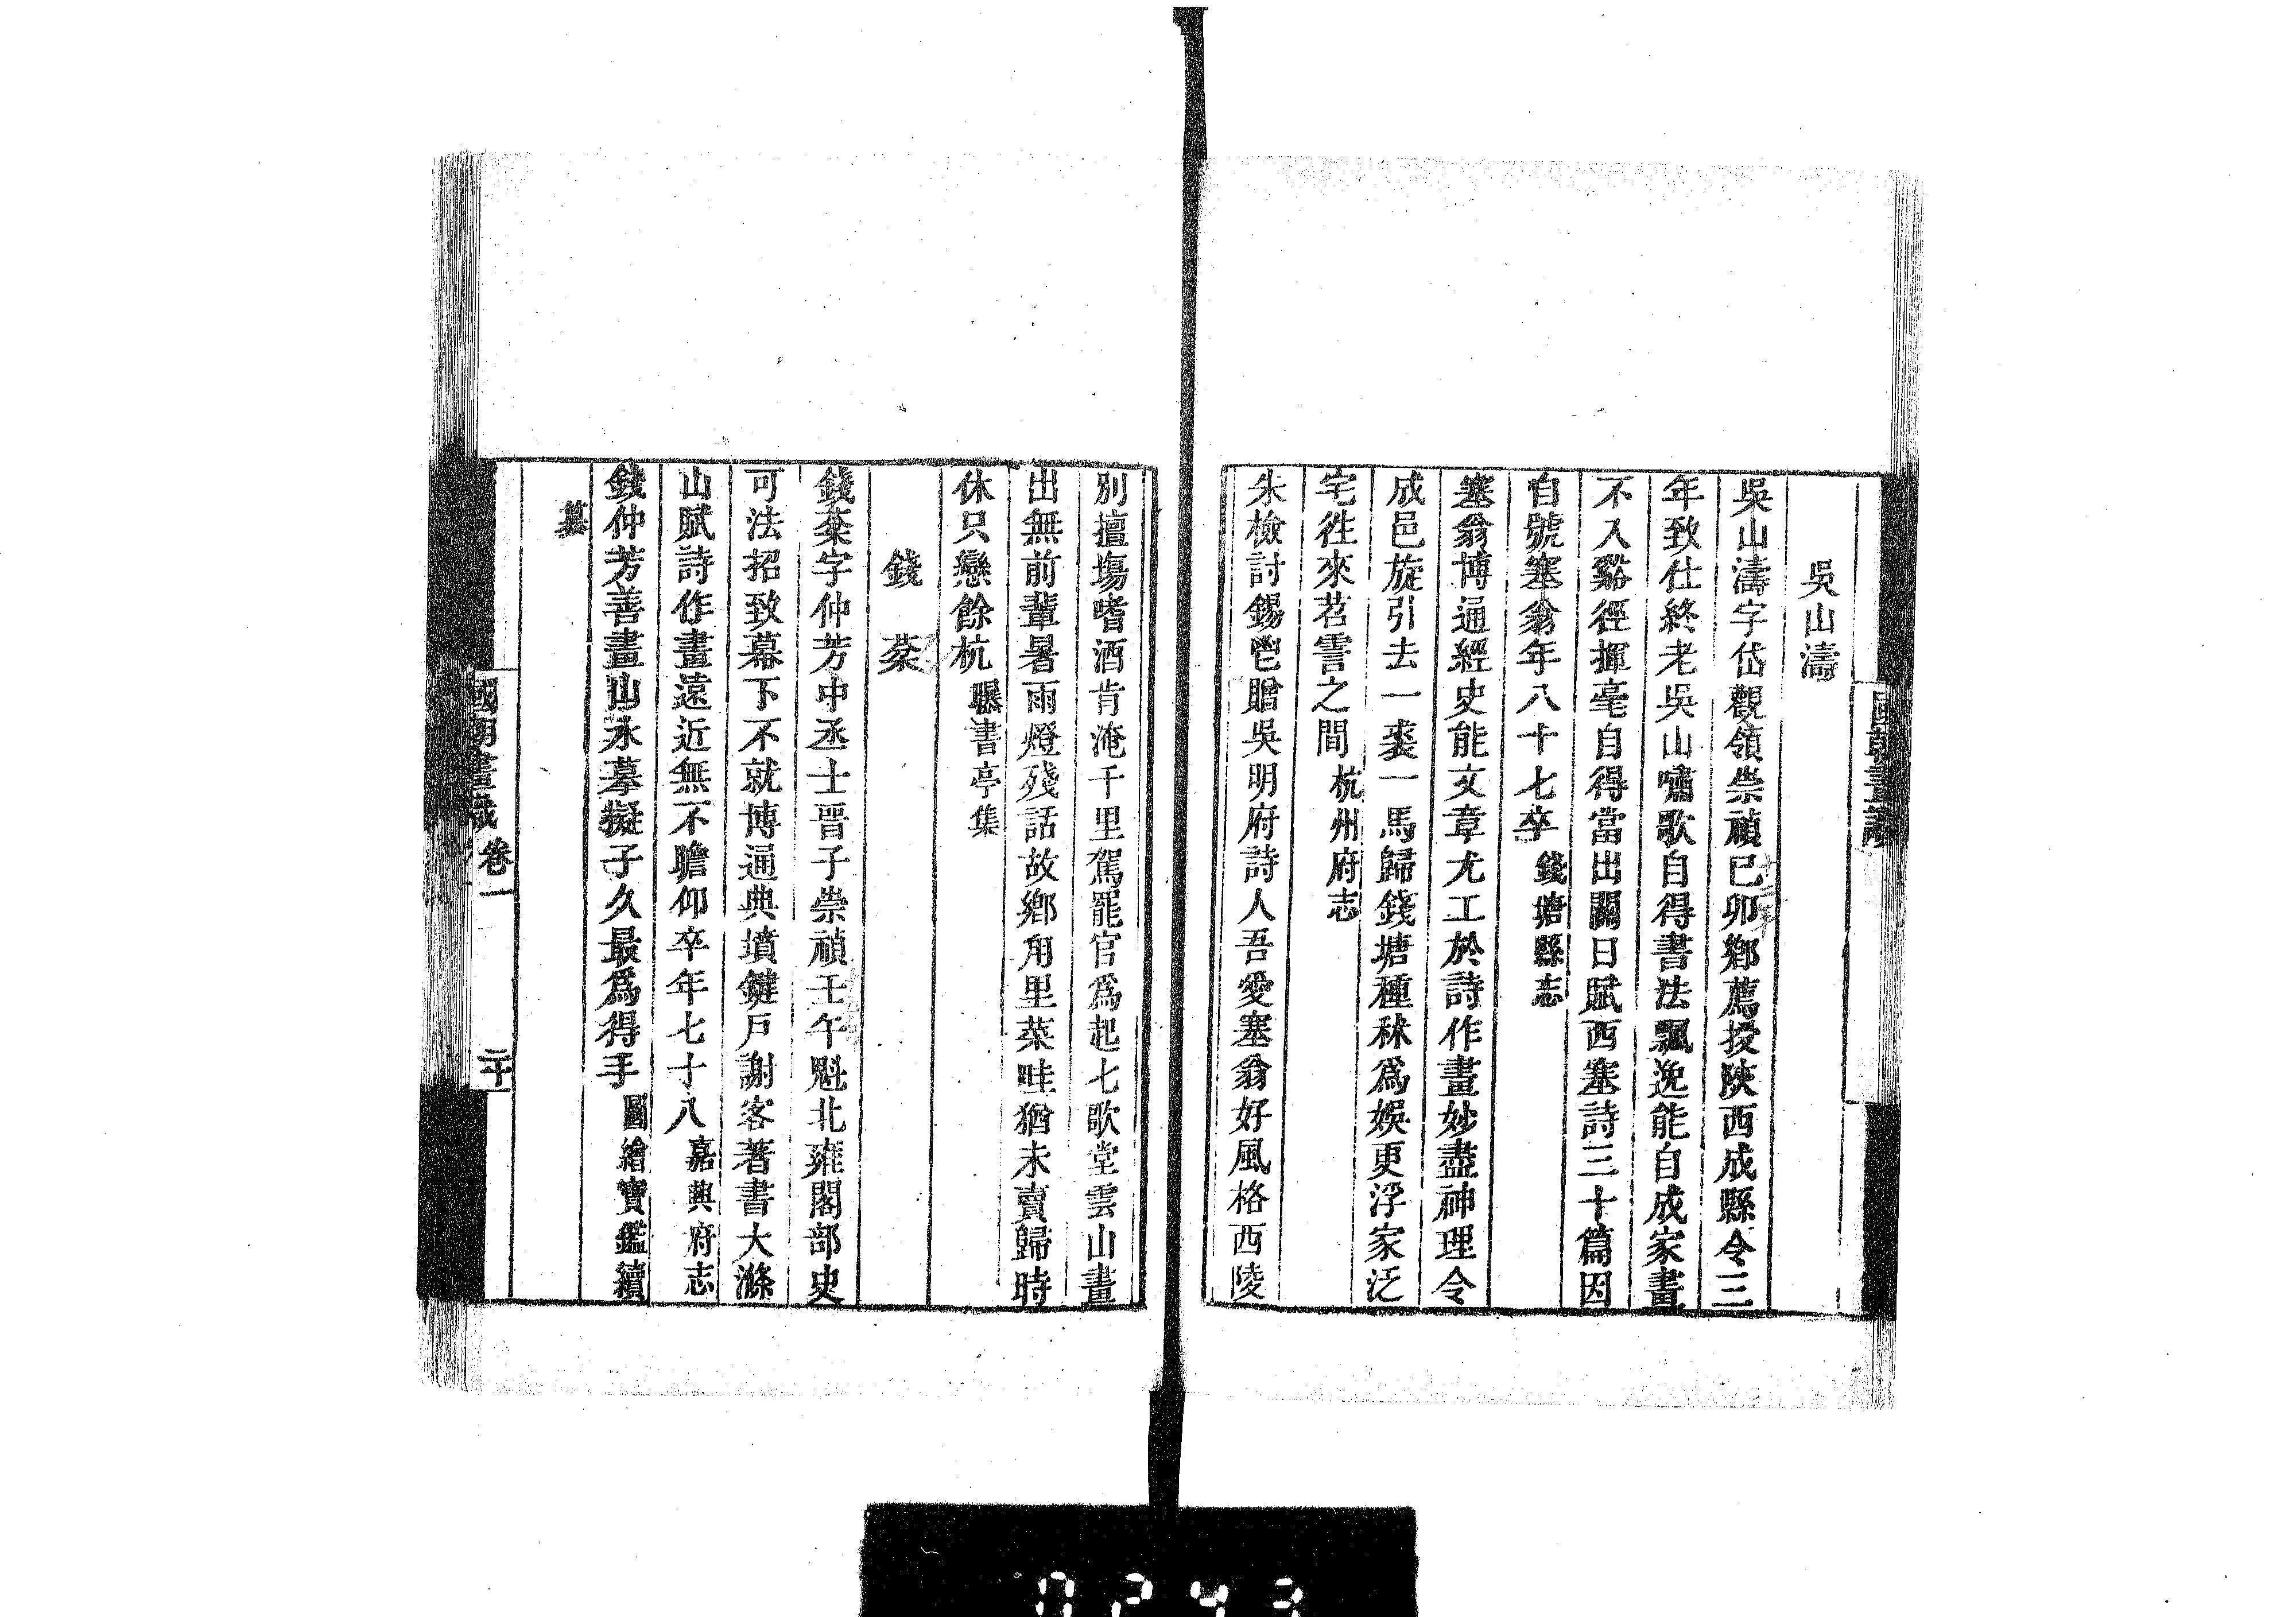 國朝畫識
吳山濤
吳山濤字岱觀領崇禎己卯鄉薦授陝西成縣令三
年致仕終老吳山嘯歌自得書法飄逸能自成家畫
不入谿徑揮毫自得當出關日賦西塞詩三十篇因
自號塞翁年八十七卒錢塘縣志
塞翁博通經史能文章尤工於詩作畫妙盡神理令
成邑旋引去一裘一馬歸錢塘種秫爲娛更浮家泛
宅徃來苕霅之間杭州府志
朱檢討錫鬯贈吳明府詩人吾愛塞翁好風格西陵
別擅塲嗜酒肯淹千里駕罷官爲起七歌堂雲山畫
出無前輩暑雨燈殘話故鄉甪里菜畦猶未賣歸時
休只戀餘杭曝書亭集
錢棻
錢棻字仲芳中丞士晋子崇禎壬午魁北雍閣部史
可法招致幕下不就博通典墳鍵戸謝客著書大滌
山賦詩作畫遠近無不瞻仰卒年七十八嘉興府志
錢仲芳善畫山水摹擬子久最爲得手圖繪寶鑑續
纂
國朝畫識 卷一 二十
0243